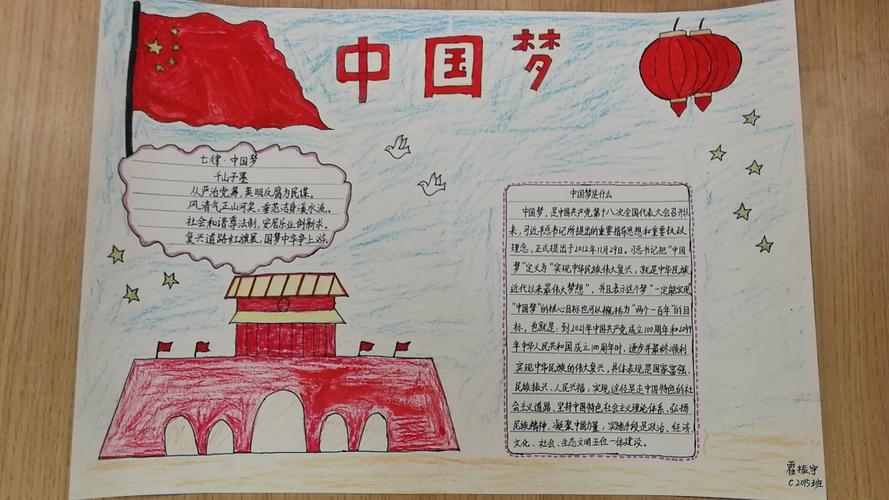 中国梦
七律·中国梦
千山子墨
从严治党筹,英明反腐为民谋。
风清气正山河笑,垂范洁身溪水流。
社会和谐尊法制,安居乐业创新求。
复兴道路红旗展,国梦中华争上游
中国梦是什么
中国梦,是中国共产党第十八次全国代表大会召开以
来,习近平总书记所提出的重要指导思想和重要执政
理念,正式提出于2012年11月29日。习总书记把“中国
梦”定义为“实现中华民族伟大复兴,就是中华民族
近代以来最伟大梦想”,并且表示这个梦“一定能实现
“中国梦”的核心目标也可以概括为“两个一百年”的目
标,也就是:到2021年中国共产党成立100周年和2049
年中华人民共和国成立100周年时,逐步并最终顺利
实现中华民族的伟大复兴,具体表现是国家富强、
民族振兴、人民幸福,实现途径是走中国特色的社
会主义道路、坚持中国特色社会主义理论体系、弘扬
民族精神、凝聚中国力量,实施手段是政治、经济
文化、社会、生态文明五位一体建设。
霍振宇
C2015班